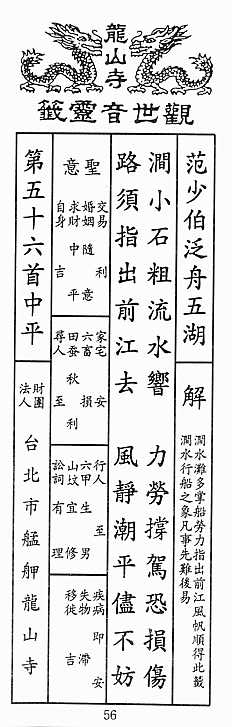 龍山寺
觀世音靈籤
范少伯泛舟五湖
解
澗水灘多掌船勞力指出前江風帆順得此籤
澗水行船之象凡事先難後易
澗小石粗流水響 力勞撐駕恐損傷
路須指出前江去 風靜潮平儘不妨
聖意
交易 利
婚姻 隨意
求財 中平
自身 吉
家宅 安
六畜 損
田蚕 秋利
尋人 至
行人 至
六甲 生男
山坟 宜修
訟詞 有理
疾病 即安
失物 滯
移徙 吉
第五十六首中平
財團法人
台北市艋舺龍山寺
56